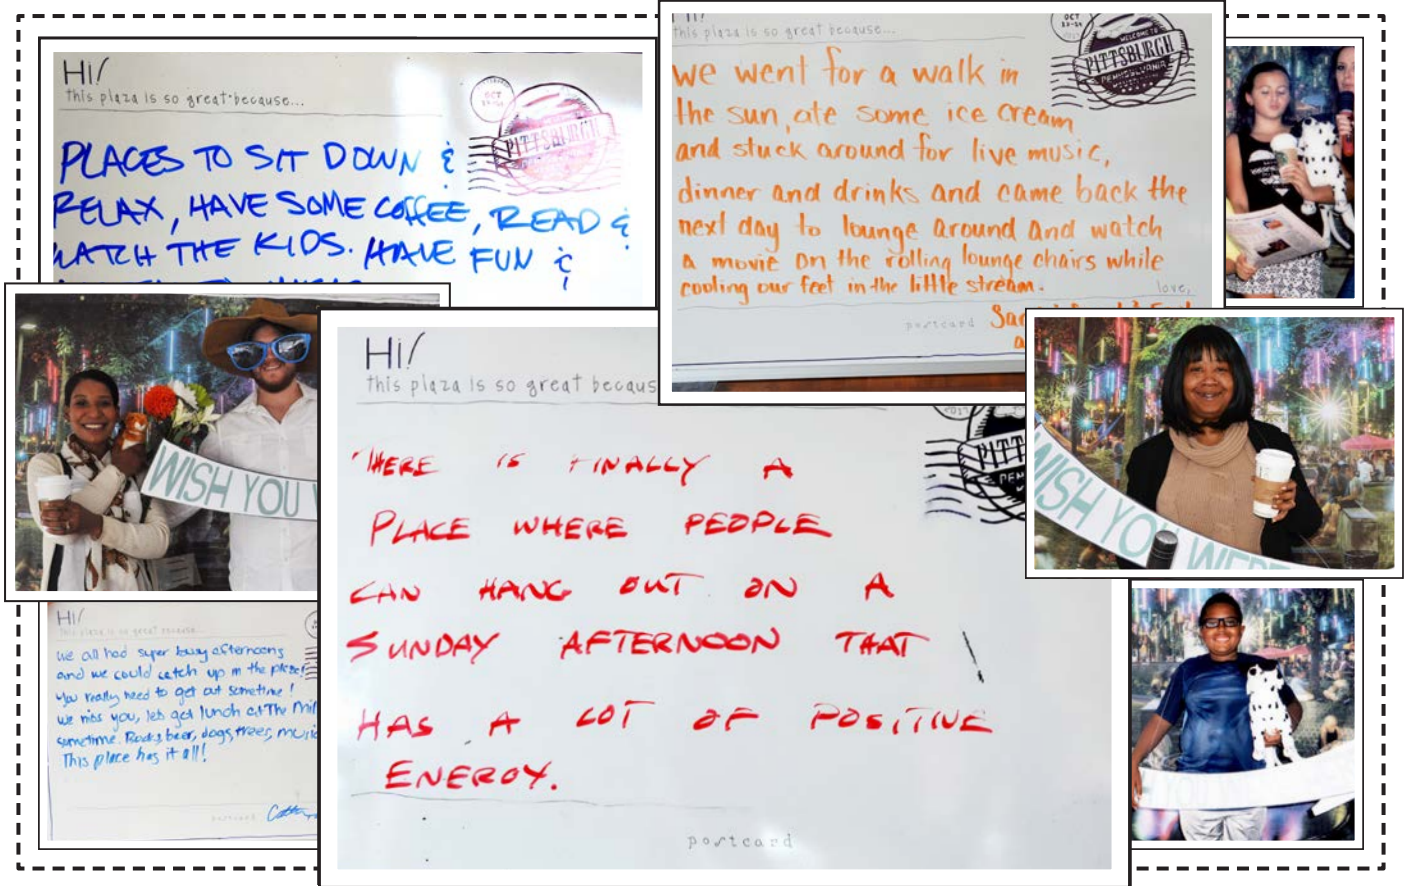 Hi!
this plaza is so great because...
PLACES TO SIT DOWN &
RELAX, HAVE SOME COFFEE, READ &
WATCH THE KIDS. HAVE FUN &
OCT
PITTSBURGH
this plaza is so great because...
we went for a walk in
the sun, ate some ice cream
and stuck around for live music,
dinner and drinks and came back the
next day to lounge around and watch
a movie on the rolling lounge chairs while
cooling our feet in the little stream.
love,
postcard
OCT
WELCOME TO
PITTSBURGH
PENNSYLVANIA
WISH YOU
Hi!
this plaza is so great becaus
THERE IS FINALLY A
PLACE WHERE PEOPLE
CAN HANG OUT ON A
SUNDAY AFTERNOON THAT
HAS A LOT OF POSITIVE
ENERGY.
postcard
PITT
PEN
WISH YOU WERE
Hi!
this plaza is so great because...
we all had super busy afternoons
and we could catch up in the plaza!
You really need to get out sometime!
we miss you, lets get lunch at The Mil
sometime. Rocks, beer, dogs, trees, music
This place has it all!
postcard